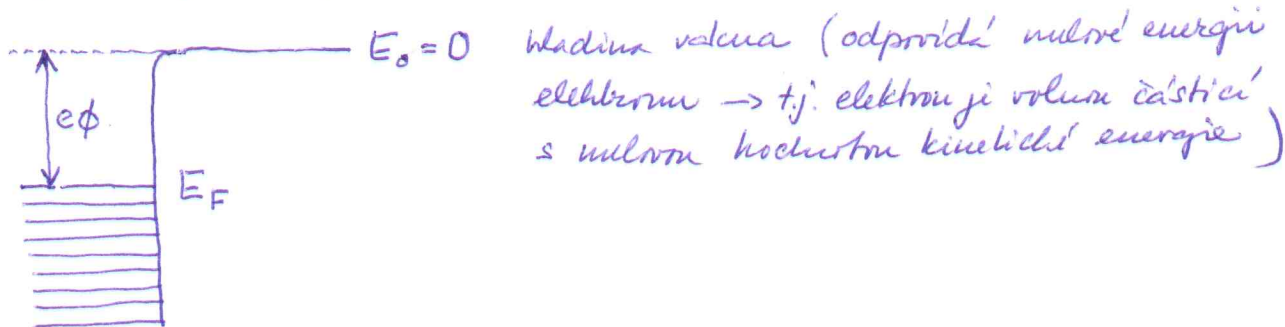 E₀ = 0 hladina vakua (odpovídá nulové energii
elektronu → t.j. elektron je volnou částicí
s nulovou hodnotou kinetické energie)
eϕ
E_F